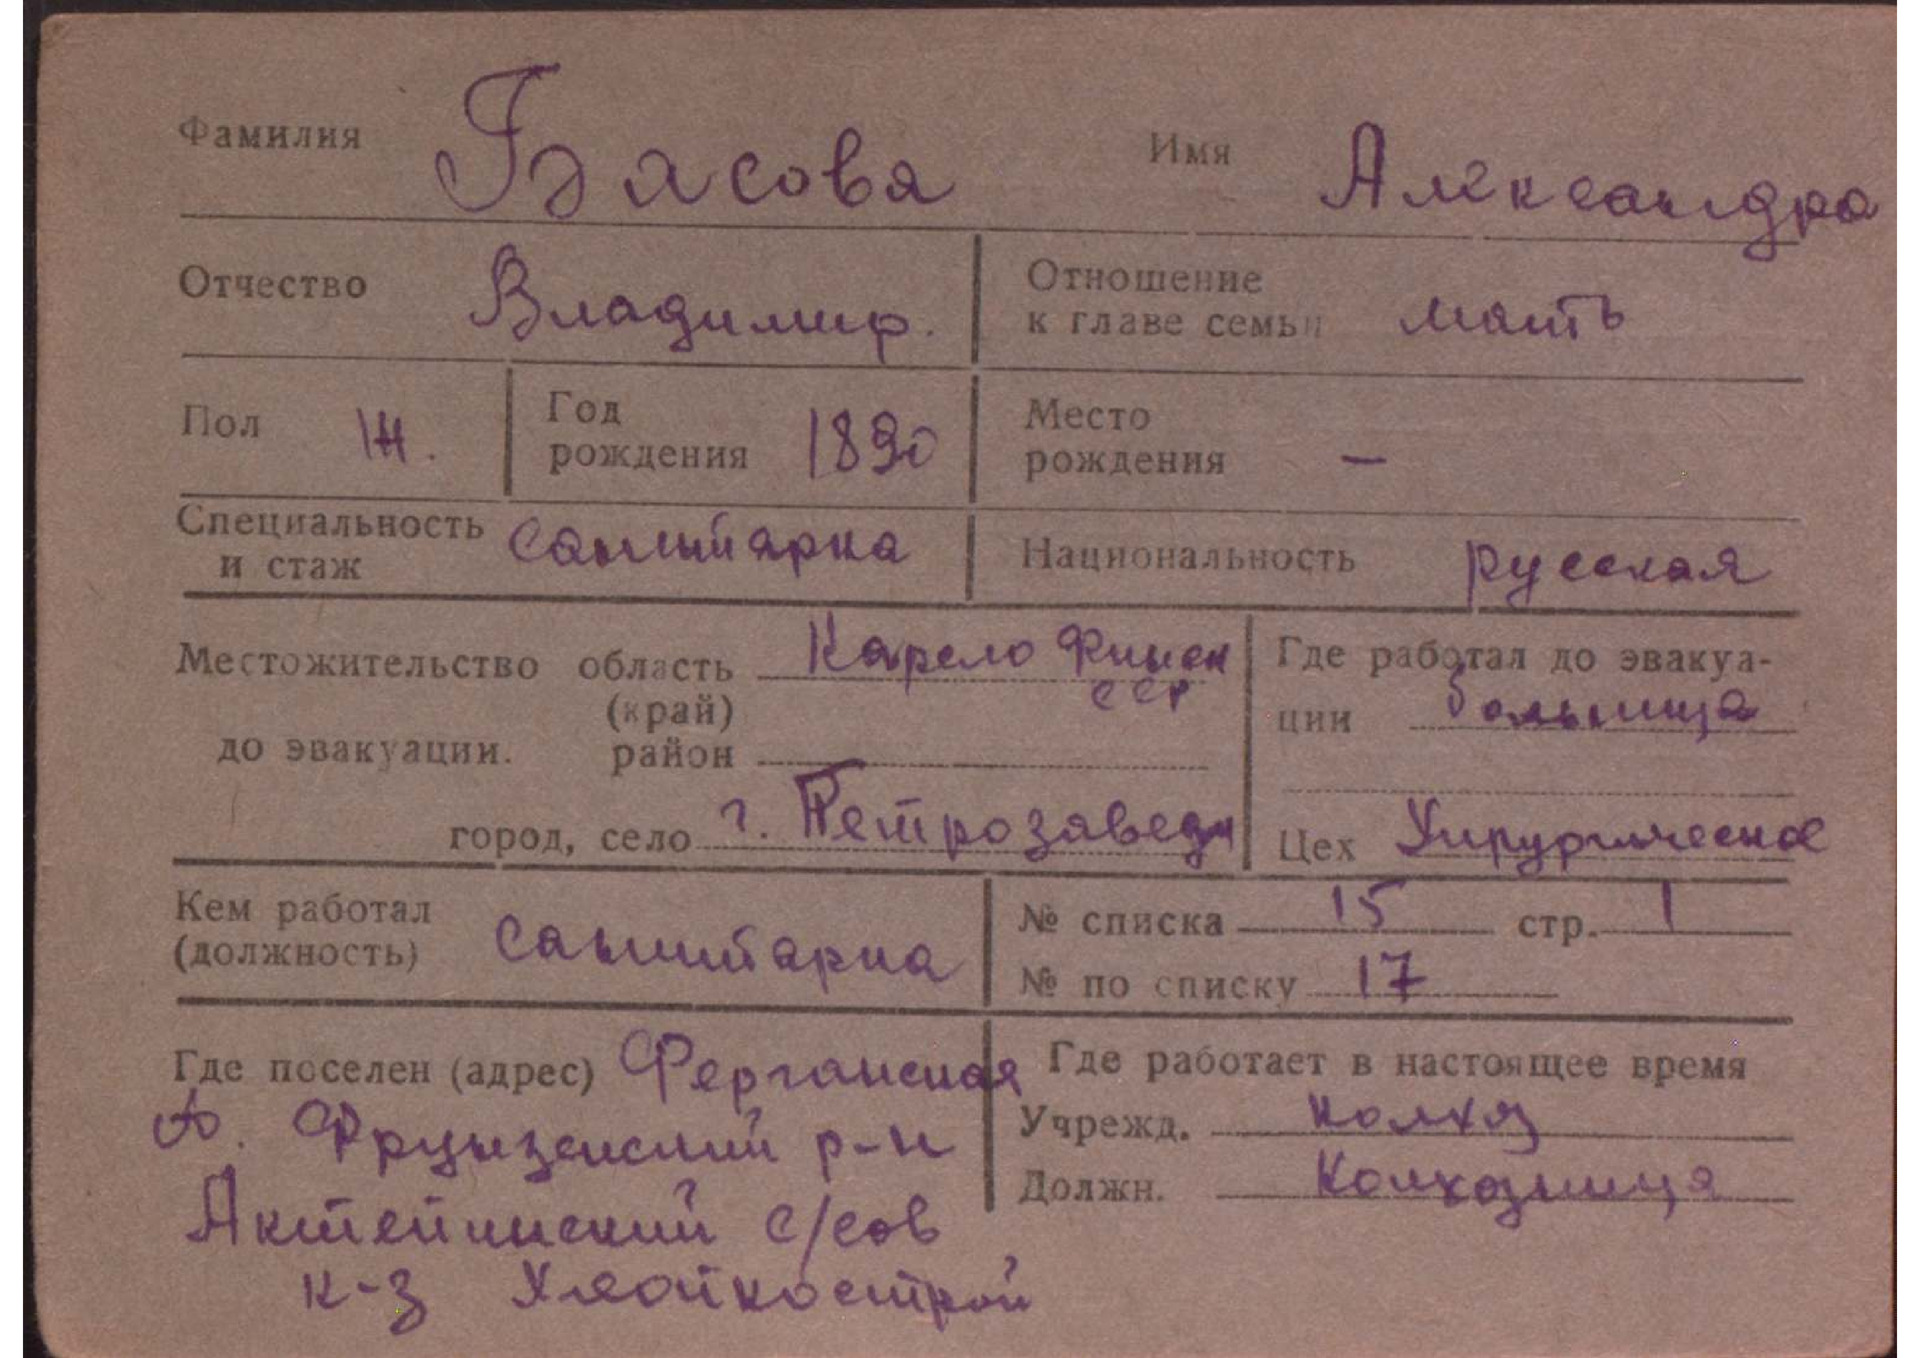 Фамилия Басова Имя Александра
Отчество Владимир. Отношение
к главе семьи мать
Пол Ж. Год
рождения 1890 Место
рождения —
Специальность
и стаж санитарка Национальность русская
Местожительство область Карело Финск
ССР
(край)
до эвакуации. район
город, село г. Петрозаводск
Где работал до эвакуа-
ции больница
Цех Хирургическое
Кем работал
(должность) санитарка
№ списка 15 стр. 1
№ по списку 17
Где поселен (адрес) Ферганская
о. Фрунзенский р-н
Актепинский с/сов
к-з Хлопкострой
Где работает в настоящее время
Учрежд. колхоз
Должн. Колхозница